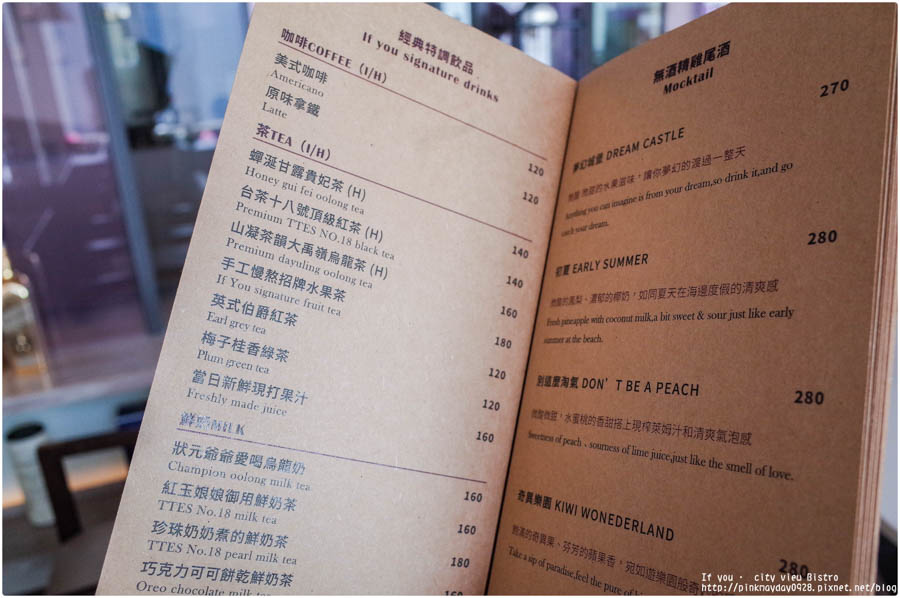 經典特調飲品
If you signature drinks
咖啡COFFEE (I/H)
美式咖啡 120
Americano
原味拿鐵 120
Latte
茶TEA (I/H)
蟬涎甘露貴妃茶 (H) 140
Honey gui fei oolong tea
台茶十八號頂級紅茶 (H) 140
Premium TTES NO.18 black tea
山凝茶韻大禹嶺烏龍茶 (H) 160
Premium dayuling oolong tea
手工慢熬招牌水果茶 180
If You signature fruit tea
英式伯爵紅茶 120
Earl grey tea
梅子桂香綠茶 120
Plum green tea
當日新鮮現打果汁 160
Freshly made juice
鮮奶MILK
狀元爺爺愛喝烏龍奶 160
Champion oolong milk tea
紅玉娘娘御用鮮奶茶 160
TTES No.18 milk tea
珍珠奶奶煮的鮮奶茶 180
TTES No.18 pearl milk tea
巧克力可可餅乾鮮奶茶 160
Oreo chocolate milk tea
無酒精雞尾酒
Mocktail
夢幻城堡 DREAM CASTLE 270
微酸 微甜的水果滋味，讓你夢幻的渡過一整天
Anything you can imagine is from your dream,so drink it,and go
catch your dream.
初夏 EARLY SUMMER 280
微酸的鳳梨、濃郁的椰奶，如同夏天在海邊度假的清爽感
Fresh pineapple with coconut milk,a bit sweet & sour just like early
summer at the beach.
別這麼淘氣 DON'T BE A PEACH 280
微酸微甜，水蜜桃的香甜搭上現榨萊姆汁和清爽氣泡感
Sweetness of peach、sourness of lime juice,just like the smell of love.
奇異樂園 KIWI WONEDERLAND 280
飽滿的奇異果、芬芳的蘋果香，宛如遊樂園般奇
Take a sip of paradise,feel the pure of
If you · city vieu Bistro
http://pinknayday0928.pixnet.net/blog